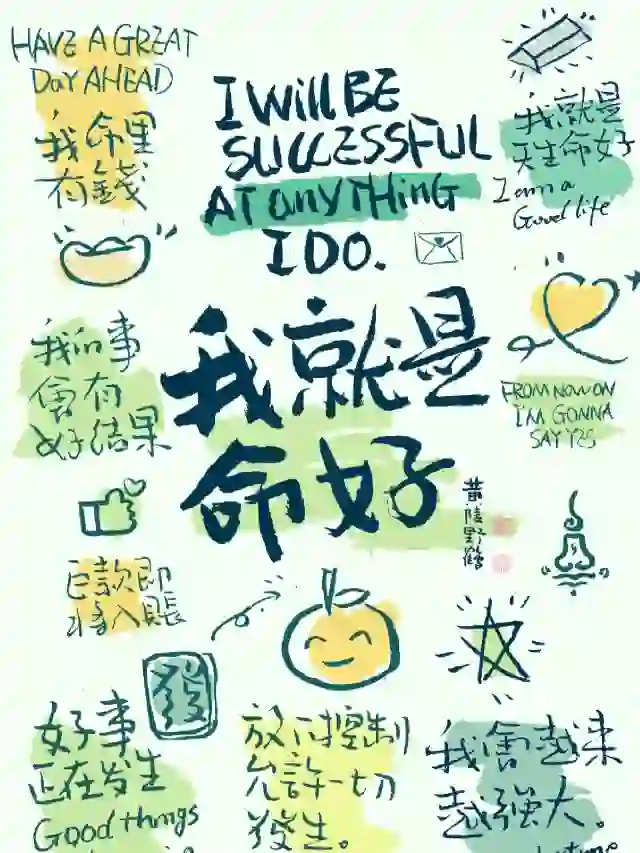 HAVE A GREAT
DAY AHEAD
我命里
有錢
I WILL BE
SUCCESSFUL
AT ANYTHING
I DO.
我就是
天生命好
I am a
Good life
我的事
會有
好結果
我就是
命好
黄陵野鶴
FROM NOW ON
I'M GONNA
SAY YES
巨款即
將入賬
發
好事
正在发生
Good things
放下控制
允許一切
發生。
我會越来
越強大。